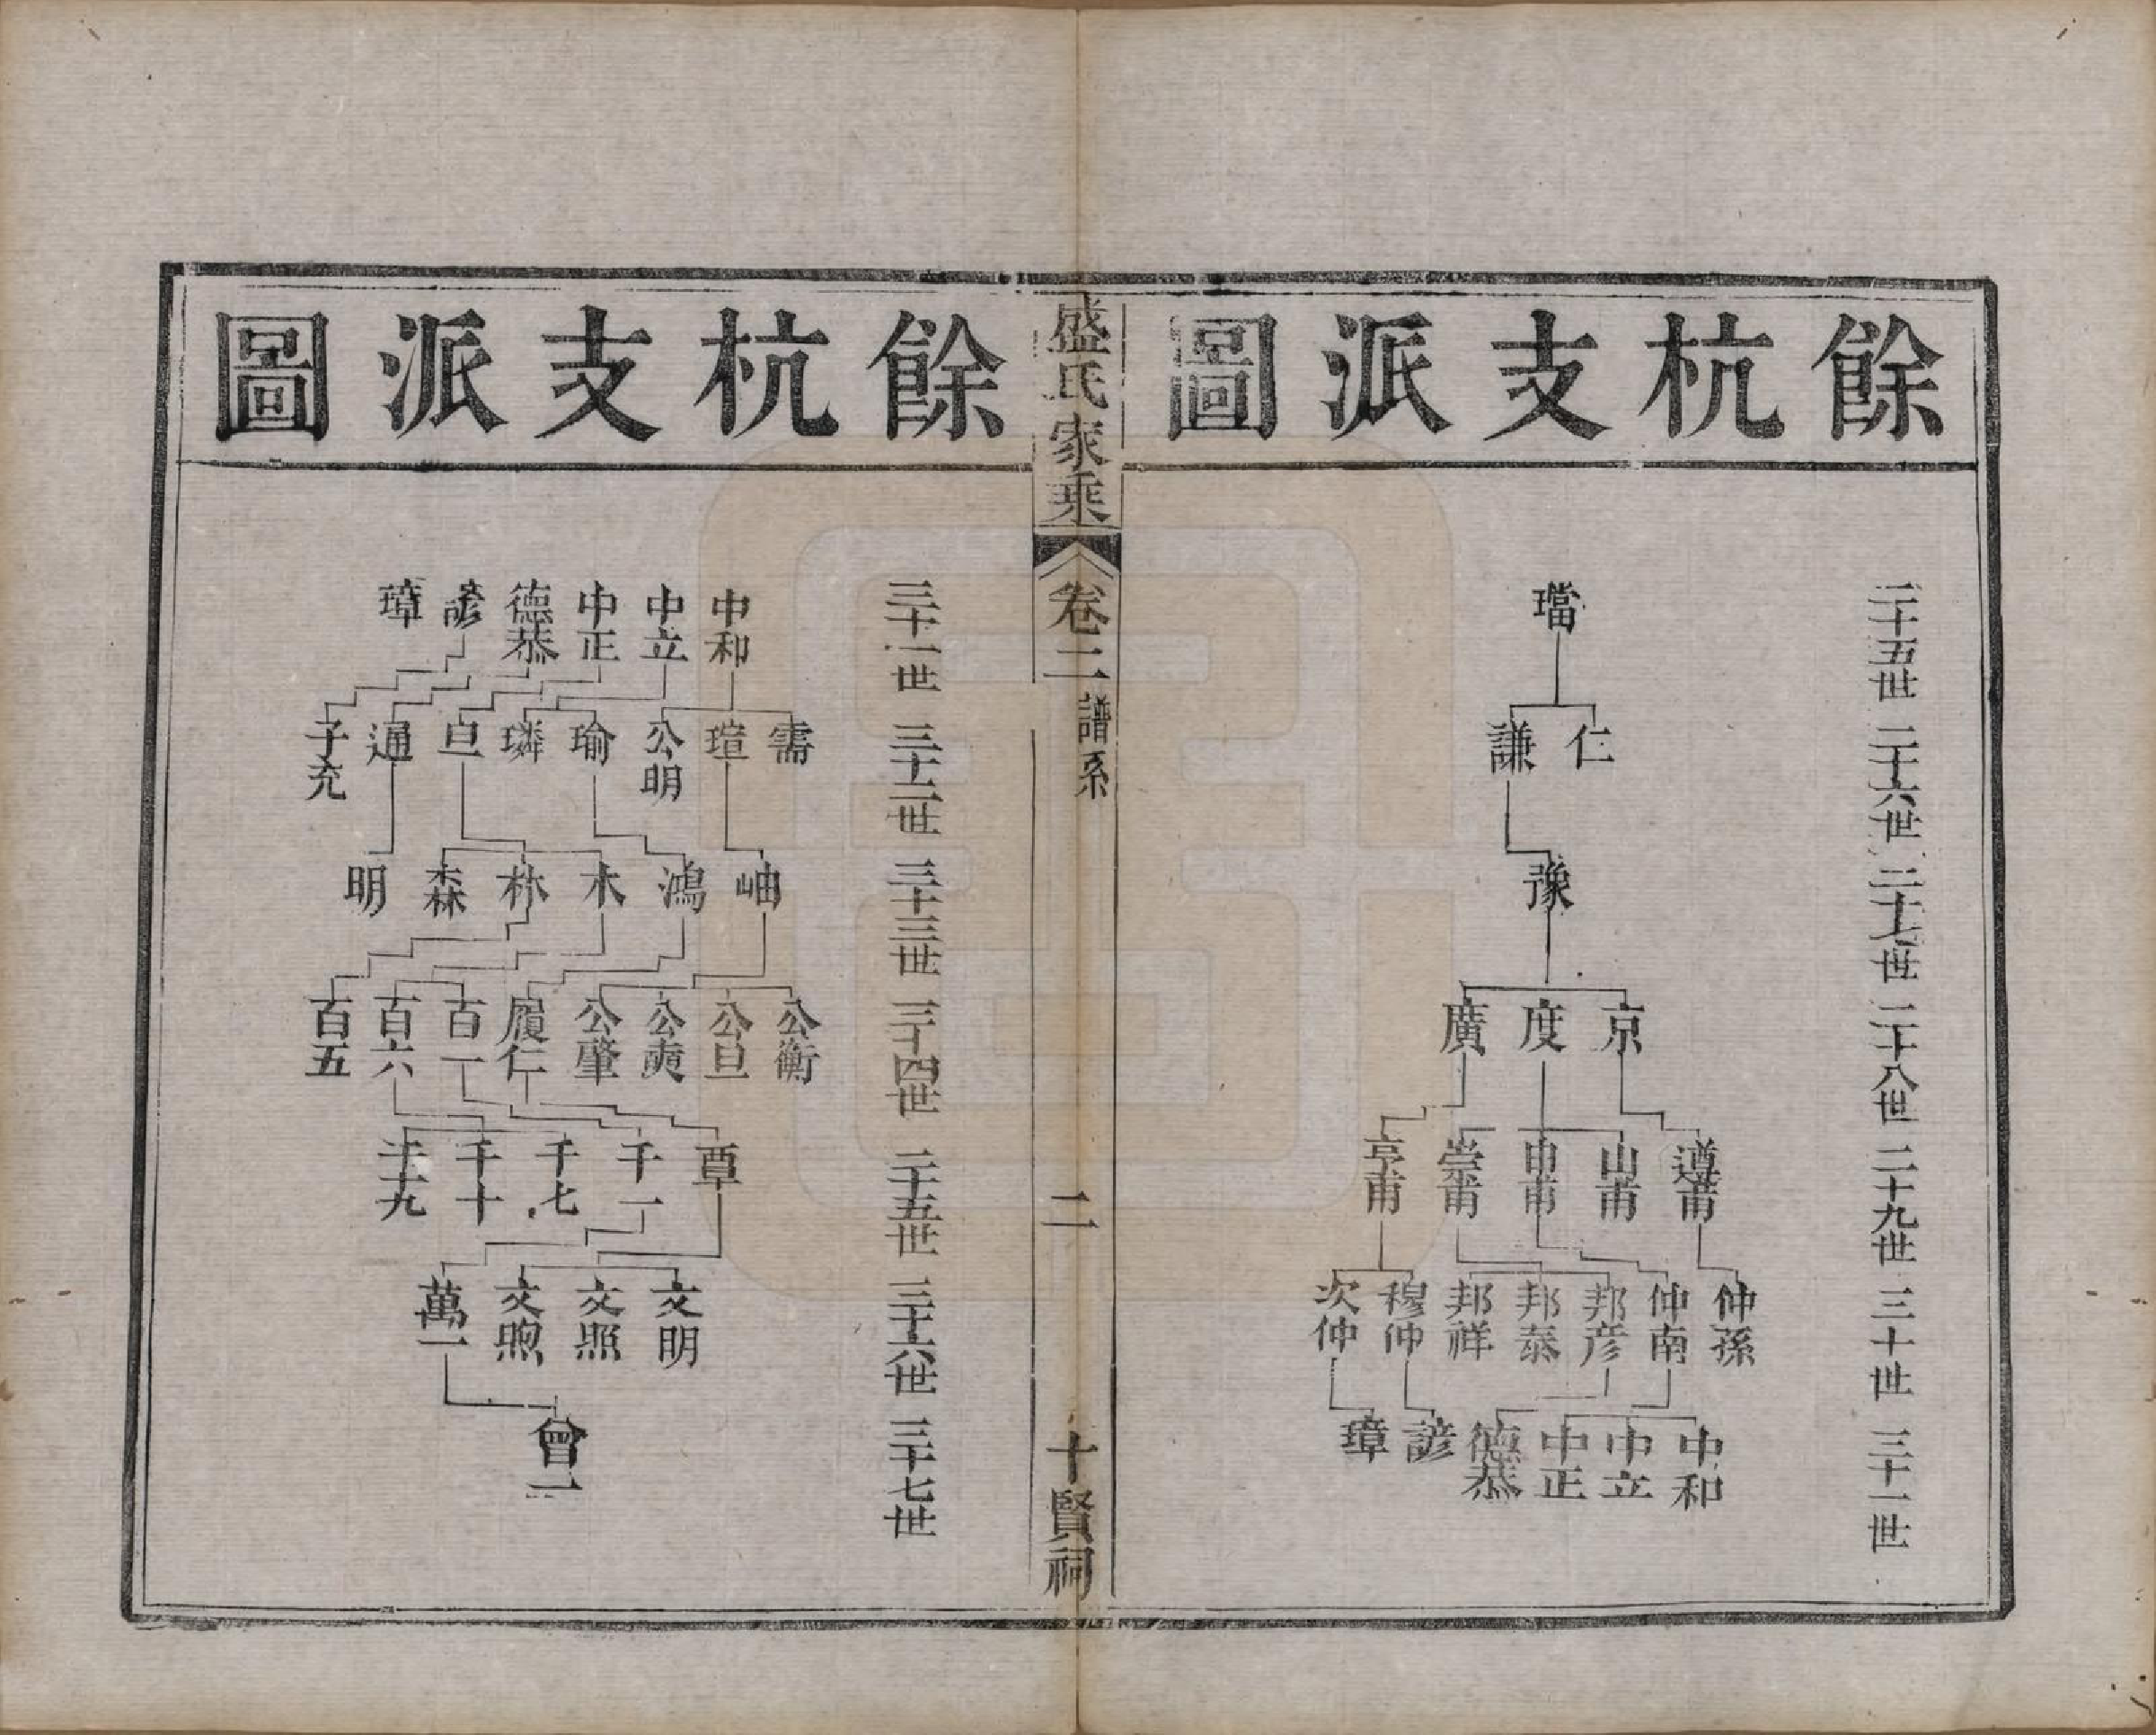 餘杭支派圖
二十五世 二十六世 二十七世 二十八世 二十九世 三十世 三十一世
璫
仁 謙
豫
京 度 廣
遵甫 山甫 申甫 崇甫 亨甫
仲孫 仲南 邦彦 邦泰 邦祥 穆仲 次仲
中和 中立 中正 德恭 諺 璋
盛氏家乘 卷二 譜系 二 十賢祠
餘杭支派圖
三十一世 三十二世 三十三世 三十四世 三十五世 三十六世 三十七世
中和 中立 中正 德恭 諺 璋
需 瑄 公明 瑜 璘 亘 通 子充
岫 鴻 木 林 森 明
公衡 公旦 公奭 公肇 履仁 百一 百六 百五
覃 千一 千七 千十 千十九
文明 文照 文煦 萬一
曾一